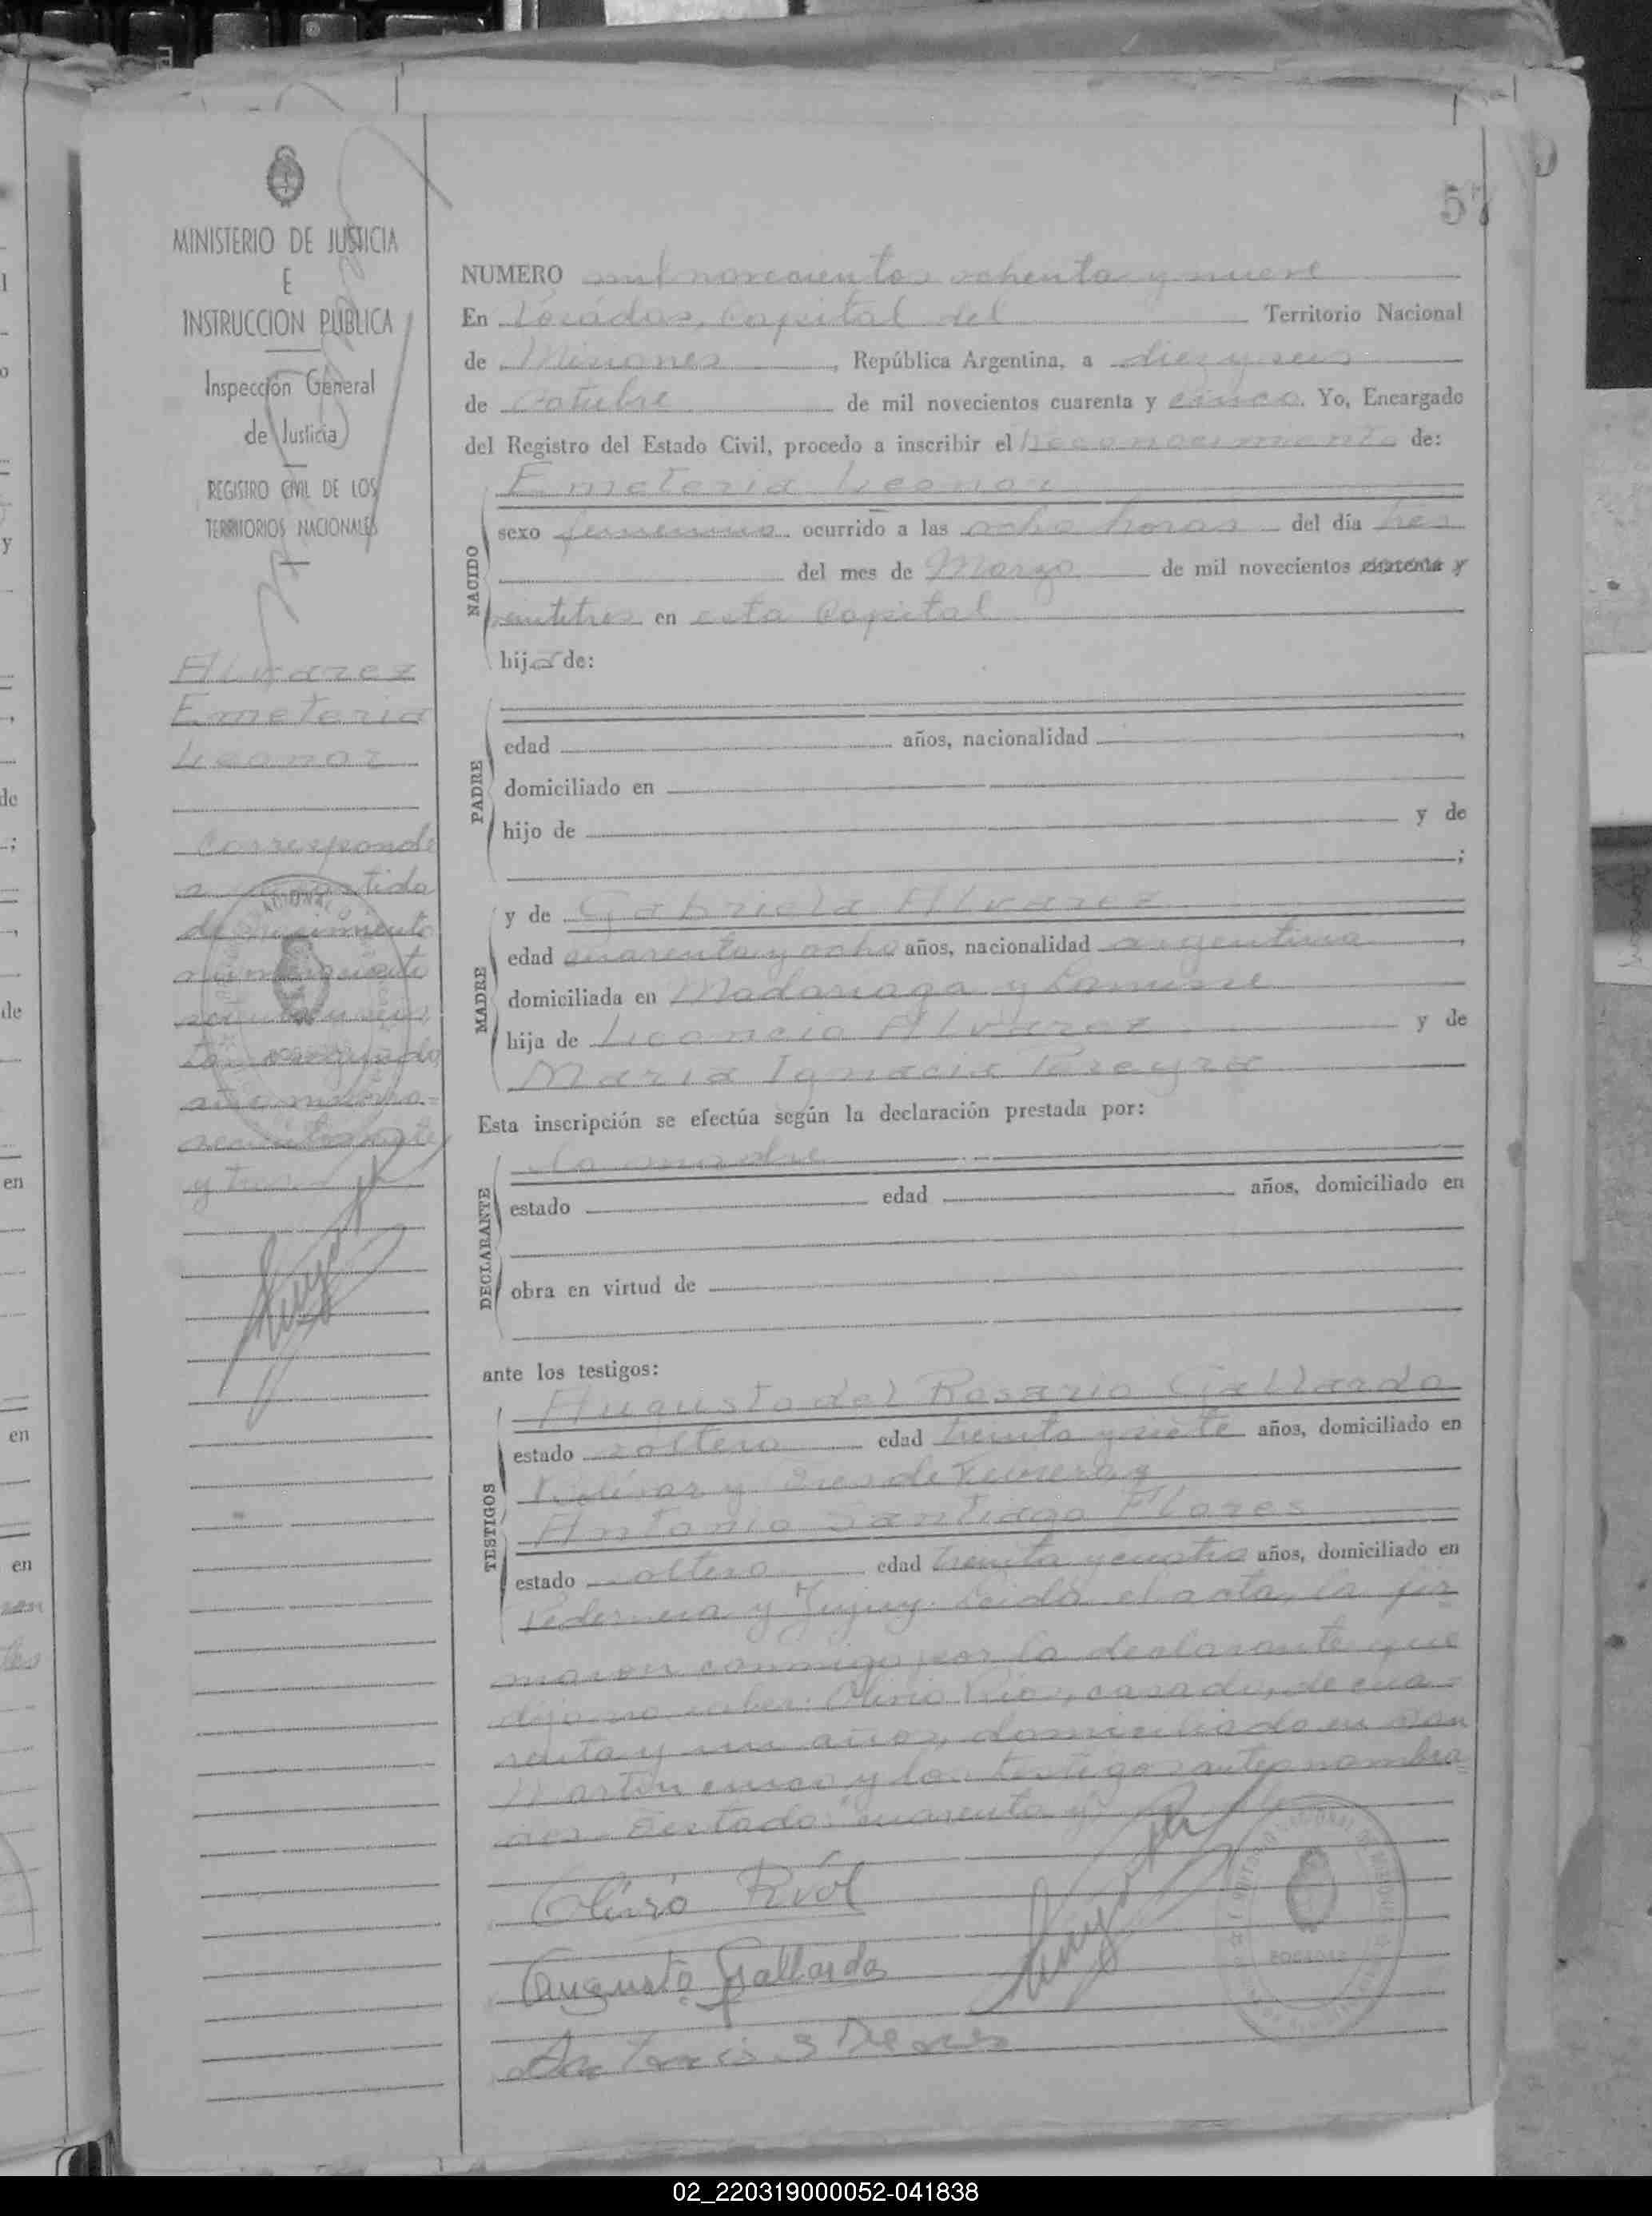 57
MINISTERIO DE JUSTICIA
E
INSTRUCCION PUBLICA
Inspección General
de Justicia
REGISTRO CIVIL DE LOS
TERRITORIOS NACIONALES
Alvarez
Emeteria
Leonor
Corresponde
a partida
de nacimiento
año mil nove=
cientos veinte
y tres
NUMERO mil novecientos ochenta y nueve
En Posadas, Capital del Territorio Nacional
de Misiones, República Argentina, a diez y seis
de Octubre de mil novecientos cuarenta y cinco. Yo, Encargado
del Registro del Estado Civil, procedo a inscribir el reconocimiento de:
Emeteria Leonor
NACIDO
sexo femenino ocurrido a las ocho horas del día tres
del mes de Marzo de mil novecientos cuarenta y
veintitres en esta Capital
hija de:
PADRE
edad años, nacionalidad
domiciliado en
hijo de y de
;
MADRE
y de Gabriela Alvarez
edad cuarenta y ocho años, nacionalidad argentina,
domiciliada en Madariaga y Lanusse
hija de Leoncio Alvarez y de
Maria Ignacia Pereyra
Esta inscripción se efectúa según la declaración prestada por:
la madre
DECLARANTE
estado edad años, domiciliado en
obra en virtud de
ante los testigos:
TESTIGOS
Augusto del Rosario Gallardo
estado soltero edad treinta y siete años, domiciliado en
Bolívar y
Antonio Santiago Flores
estado soltero edad treinta y cuatro años, domiciliado en
Pedernera y Jujuy. Leida el acta, la fir=
maron conmigo por la declarante que
dijo no saber: Olirio Rios, casado, de cua=
renta y un años, domiciliado en San
Martin cinco y los testigos antes nombra=
dos. Testado: cuarenta y
Augusto Gallardo
Antonio S Flores
POSADAS
02_220319000052-041838